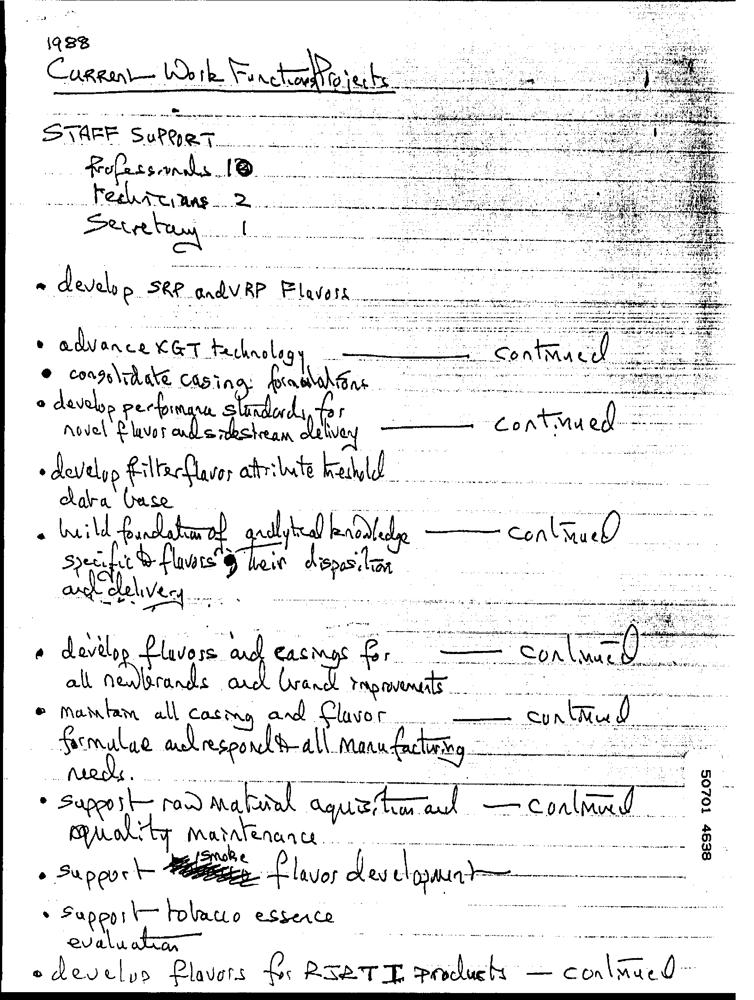 1988
Current Work Functions/Projects
STAFF SUPPORT
Professionals 10
Technicians 2
Secretary 1
• develop SRP and VRP Flavors
• advance XGT technology — continued
• consolidate casing formulations
• develop performance standards for
novel flavor and sidestream delivery — continued
• develop filter flavor attribute threshold
data base
• build foundation of analytical knowledge — continued
specific to flavors, their disposition
and delivery
• develop flavors and casings for — continued
all new brands and brand improvements
• maintain all casing and flavor — continued
formulae and respond to all manufacturing
needs.
• support raw material aquisition and — continued
quality maintenance
• support smoke flavor development
• support tobacco essence
evaluation
• develop flavors for RJRTI products — continued
50701 4638